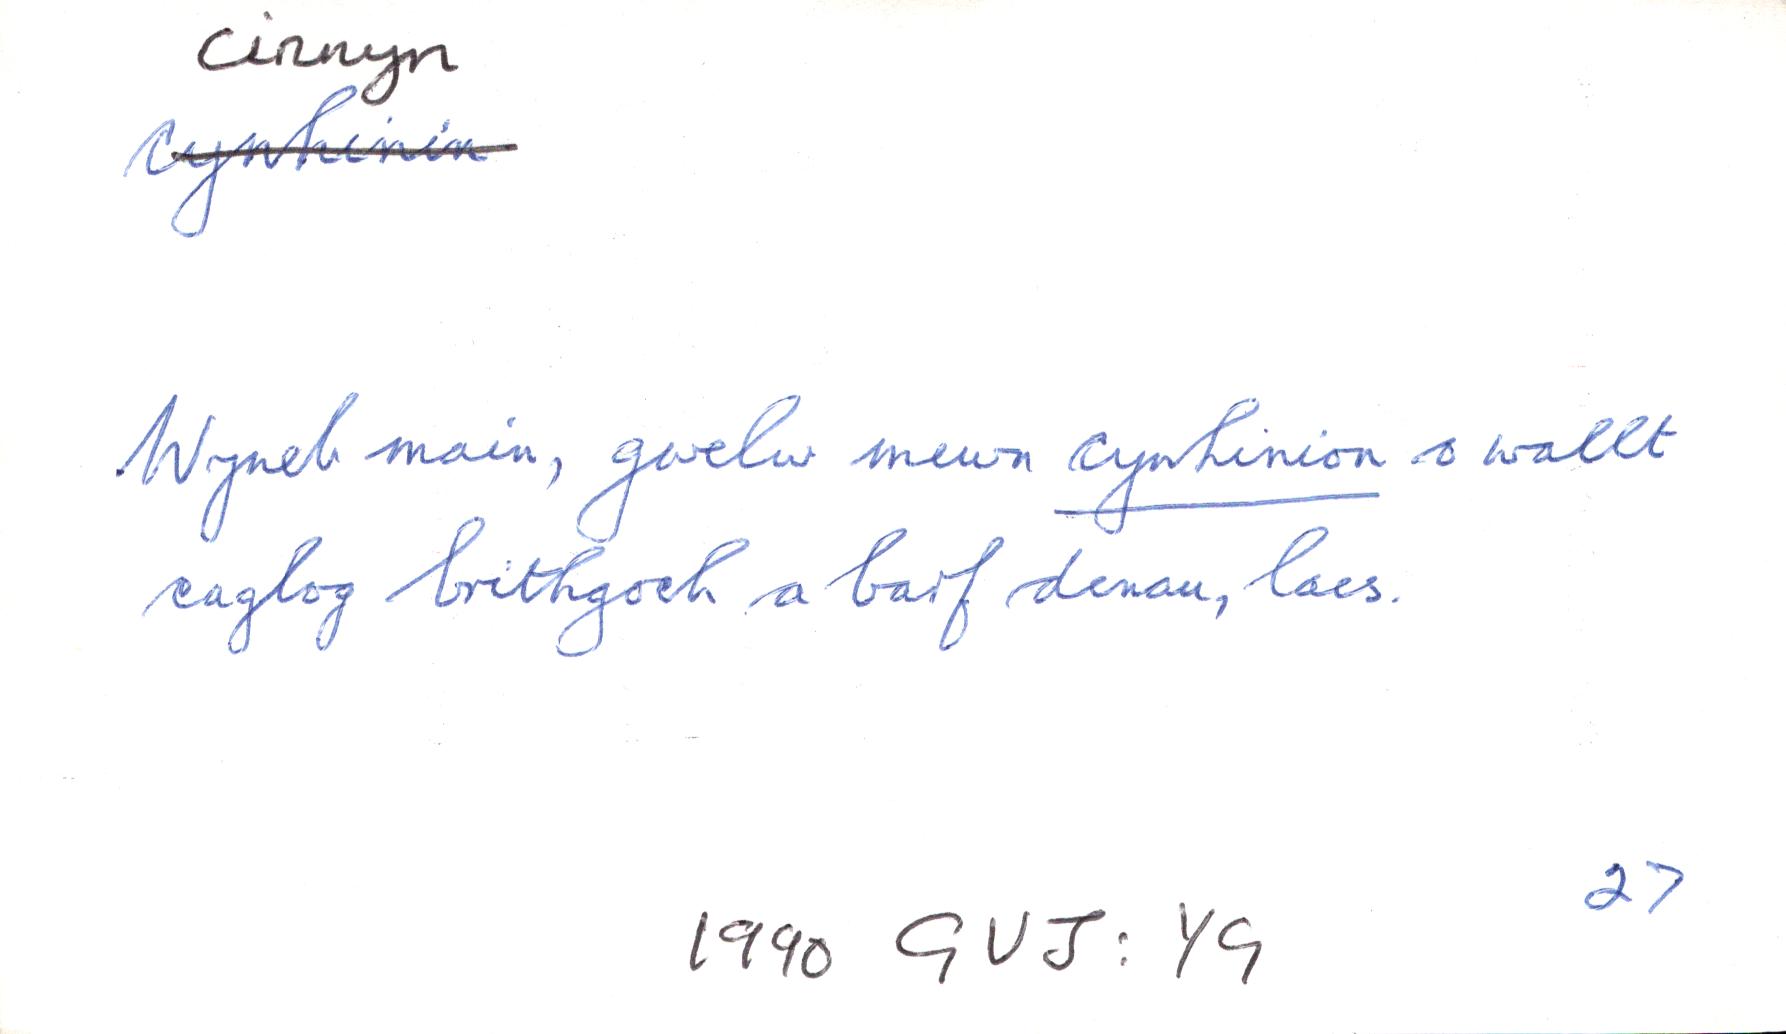 cinnyn
cynhinin
Wyneb main, gwelw mewn cynhinion o wallt
caglog brithgoch a barf denau, laes.
27
1990 GVJ: YG